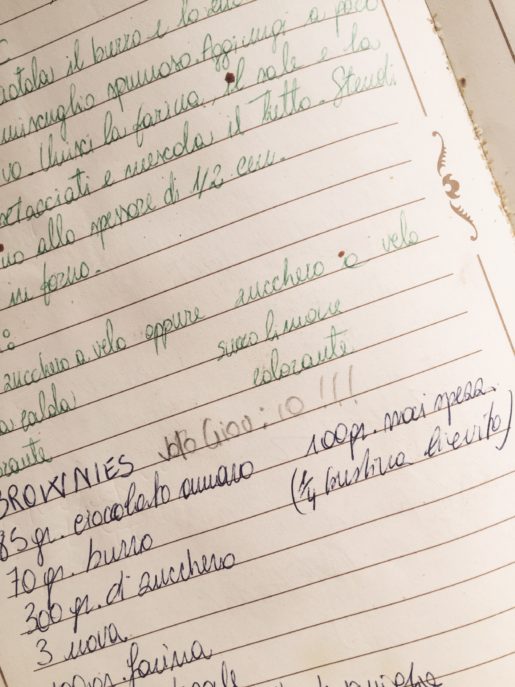 il burro e lo
miscuglio spumoso. Aggiungi a poco
vo. Unisci la farina, il sale e la
setacciati e mescola il tutto. Stendi
allo spessore di 1/2 cm.
in forno.
zucchero a velo oppure zucchero a velo
calda succo limone
colorante
BROWNIES !!!
85 gr. cioccolato amaro 100 gr. noci spezz.
70 gr. burro (1/4 bustina lievito)
300 gr. di zucchero
3 uova
100 gr. farina
sale